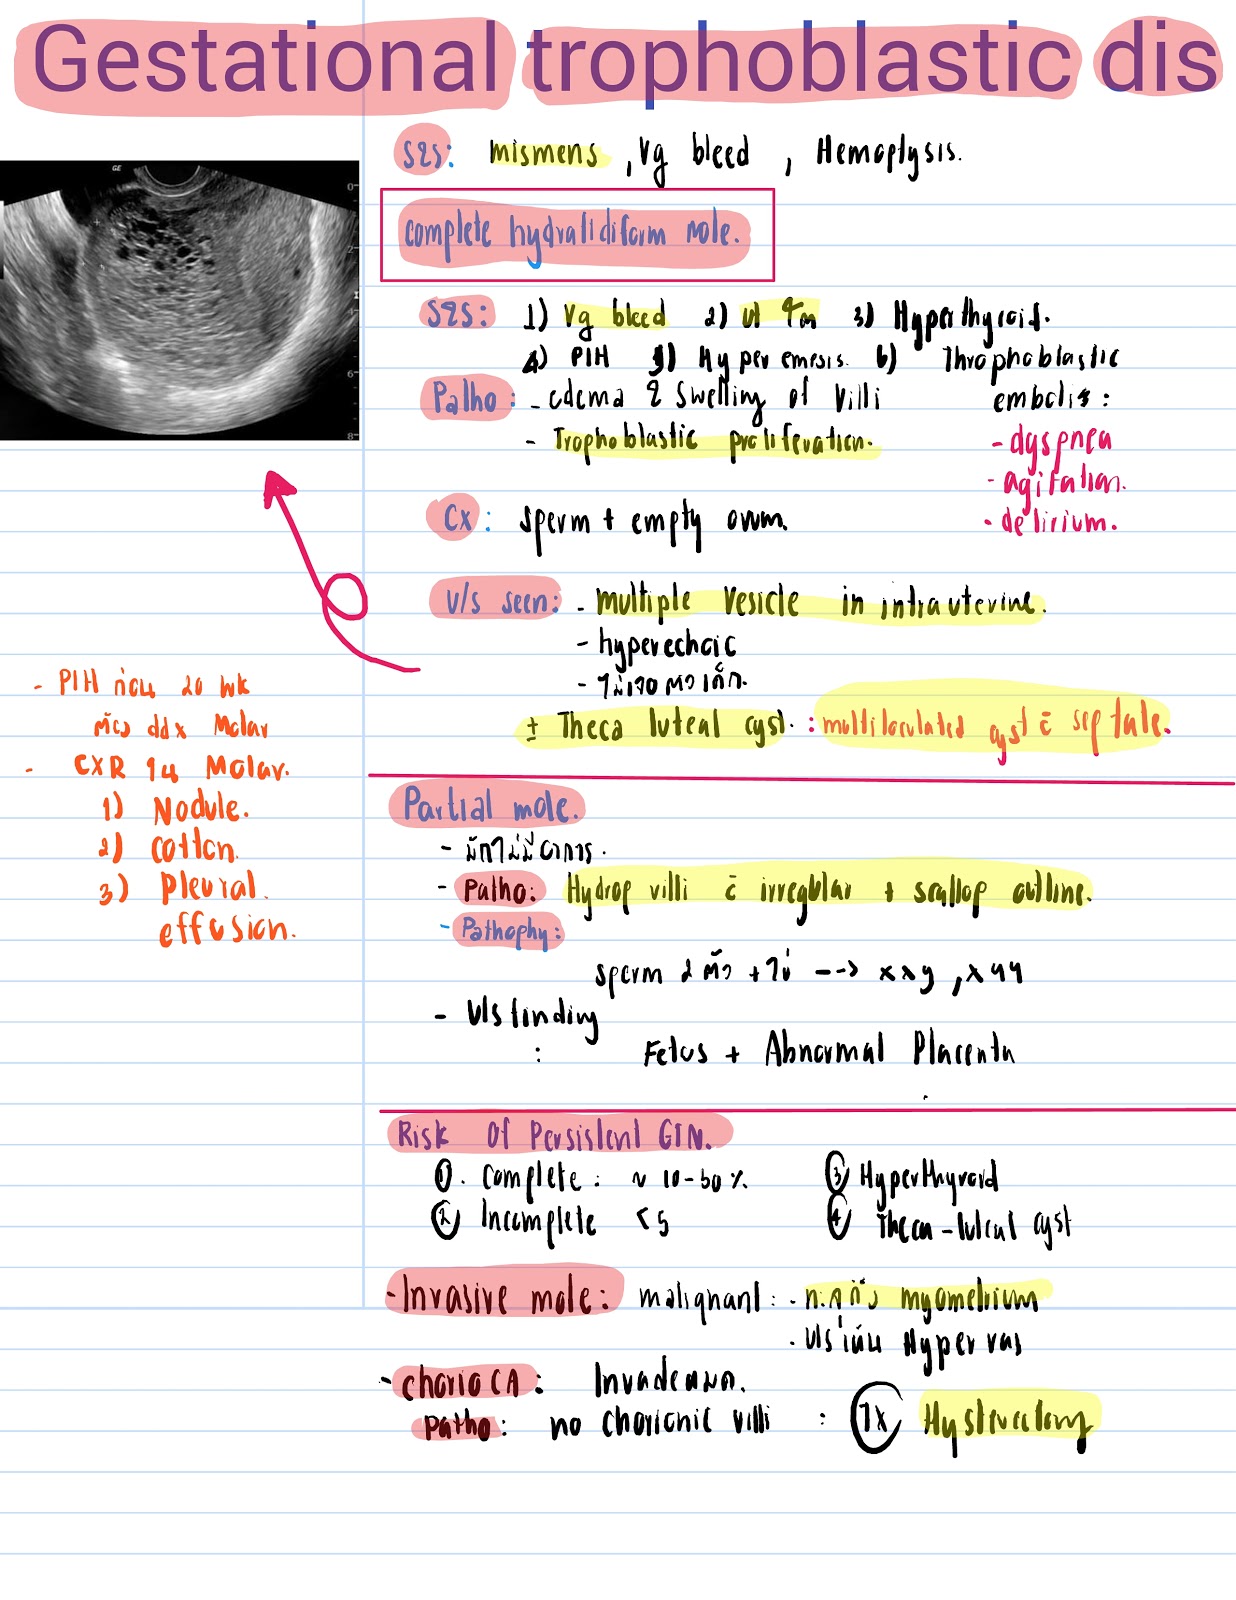 Gestational trophoblastic dis
S&S: mismens, Vg bleed, Hemoptysis.
complete hydratidiform mole.
S&S: 1) Vg bleed 2) 3) Hyperthyroid.
4) PIH 5) Hyperemesis. 6) Throphoblastic
embolis:
- dyspnea
- agitation.
- delirium.
Patho: - edema & Swelling of Villi
- Trophoblastic proliferation.
Cx: sperm + empty ovum.
U/S seen: - multiple vesicle in intrauterine.
- hyperechoic
- ไม่เจอตัวเด็ก.
± Theca luteal cyst. : multiloculated cyst c̄ septate.
- PIH ก่อน 20 wk
ต้อง ddx Molar
- CXR ใน Molar.
1) Nodule.
2) cotton.
3) Pleural.
effusion.
Partial mole.
- มักไม่มีอาการ.
- Patho: Hydrop villi c̄ irregular + scallop outline.
- Pathophy:
sperm 2 ตัว + ไข่ --> xxy, xyy
- U/S finding
: Fetus + Abnormal Placenta
Risk Of Persistent GTN.
① Complete: ~ 10-30%
② Incomplete < 5
③ Hyperthyroid
④ Theca-luteal cyst
- Invasive mole: malignant: - myometrium
- U/S เห็น Hypervas
- chorio CA: Invade
Patho: no chorionic villi : Tx Hysterectomy